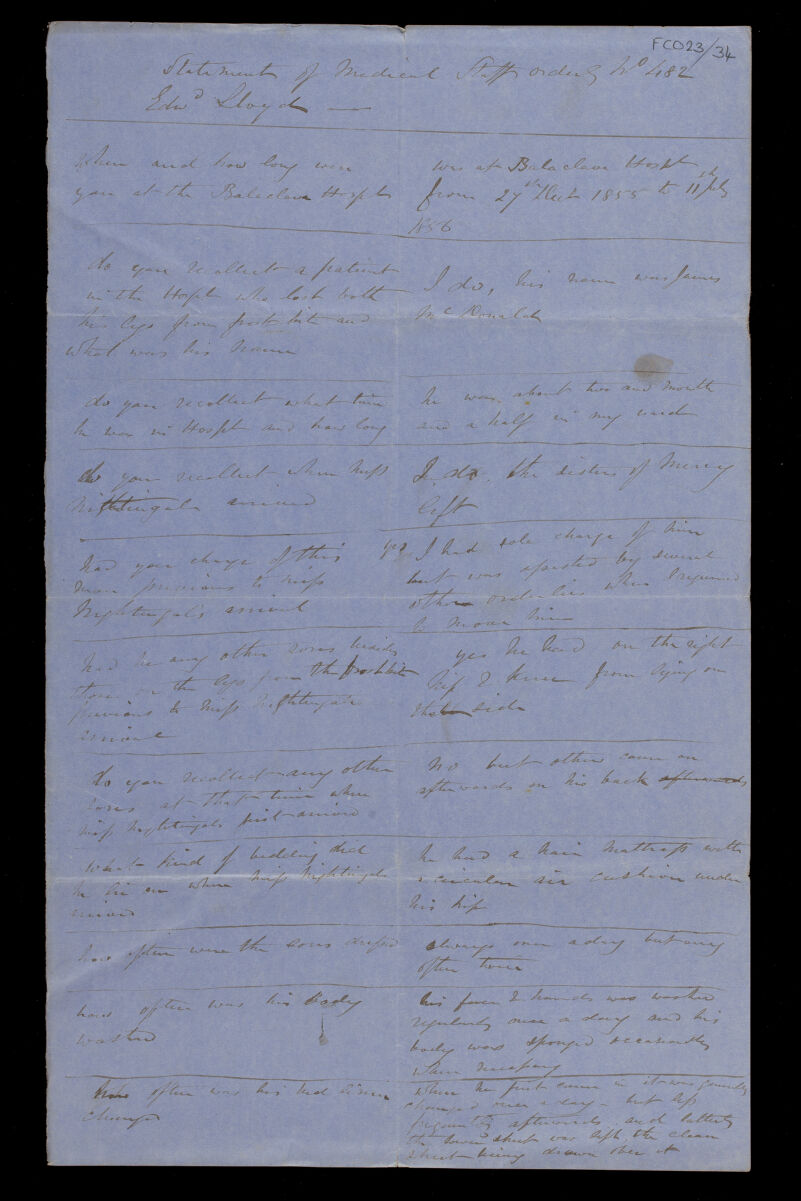 FCO23/34
Statement of Medical Staff orderly No 482
Edwd Lloyd
When and how long were
you at the Balaclava Hospl
was at Balaclava Hospl
from 27th Dect 1855 to 11th July
1856
do you recollect a patient
in the Hospl who lost both
his legs from frost bite and
what was his name
I do, his name was James
McDonald
do you recollect what time
he was in Hospl and how long
he was about two and month
and a half in my ward
do you recollect when Miss
Nightingale arrived
I do, the sisters of Mercy
left
had you charge of this
man previous to Miss
Nightingale's arrival
yes I had sole charge of him
but was assisted by several
other orderlies when required
to move him
had he any other sores besides
those on the legs from the frostbite
previous to Miss Nightingale
arrival
yes he had on the right
hip I knew from lying on
that side
do you recollect any other
sores at that time when
Miss Nightingale first arrived
No but others came on
afterwards on his back afterwards
what kind of bedding did
he lie on when Miss Nightingale
arrived
he had a hair mattress with
a circular air cushion under
his hip
how often were the sores dressed
always once a day but very
often twice
how often was his body
washed
his face & hands was washed
regularly once a day and his
body was sponged occasionally
when necessary
how often was his bed linen
changed
when he first came in it was generally
changed once a day - but less
frequently afterwards and latterly
the lower sheet was left, the clean
sheet being drawn over it